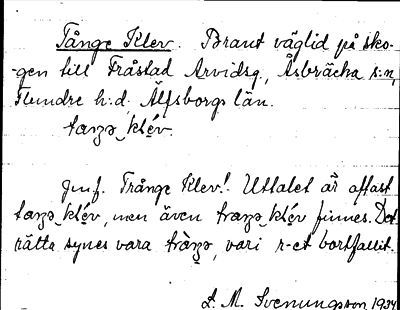 Tånge Klev. Brant väglid på sko-
-gen till Fråstad Arvidsg., Åsbräcka s:n,
Flundre h:d, Älfsborgs län.
taŋə klév.
Jmf. Trånge Klev! Uttalet är oftast
taŋə klév, men även traŋə klév finnes. Det
rätta synes vara tràŋə, vari r-et bortfallit.
L. M. Svenungsson 1934